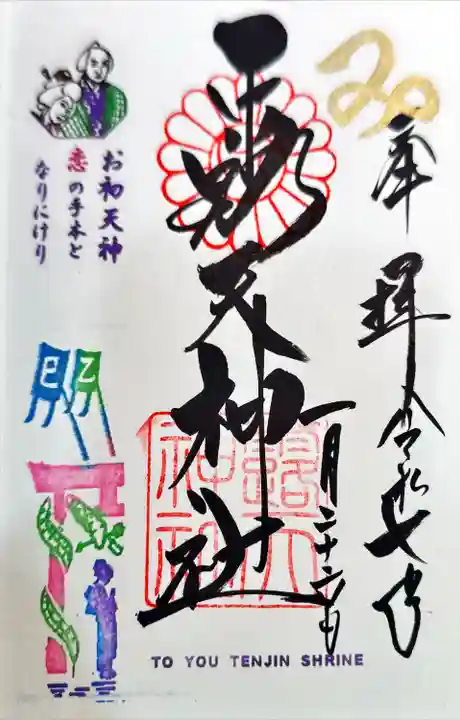 奉拝 令和七年
一月二十六日
露天神社
露天神社
お初天神
恋の手本と
なりにけり
乙
巳
TO YOU TENJIN SHRINE